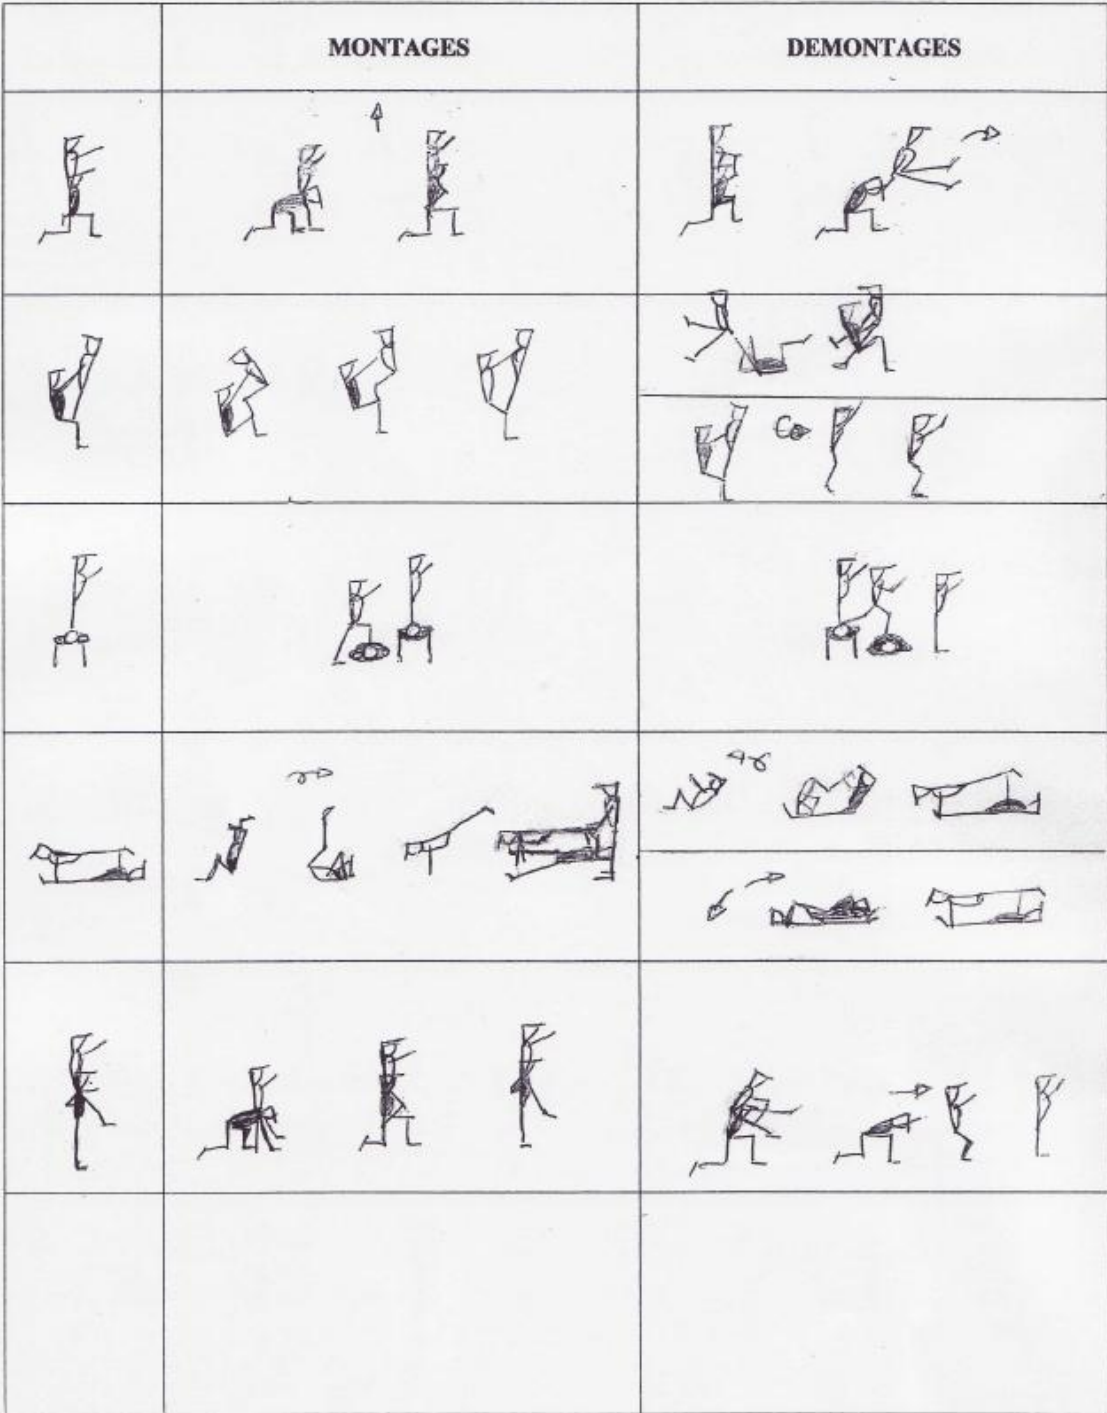 MONTAGES
DEMONTAGES